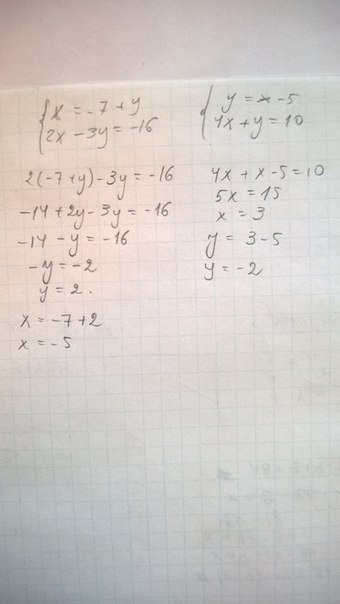 x = -7 + y
2x - 3y = -16
2(-7+y) - 3y = -16
-14 + 2y - 3y = -16
-14 - y = -16
-y = -2
y = 2.
x = -7 + 2
x = -5
y = x - 5
4x + y = 10
4x + x - 5 = 10
5x = 15
x = 3
y = 3 - 5
y = -2